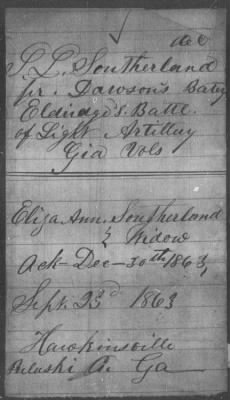 S. L. Southerland
pr. Dawson's Baty
Eldridge's Batte.
of Light Artillery
Gia Vols
Eliza Ann Southerland
Widow
Ack - Dec - 30th 1863,
Sept. 23d 1863
Hawkinsville
Pulaski Co. Ga